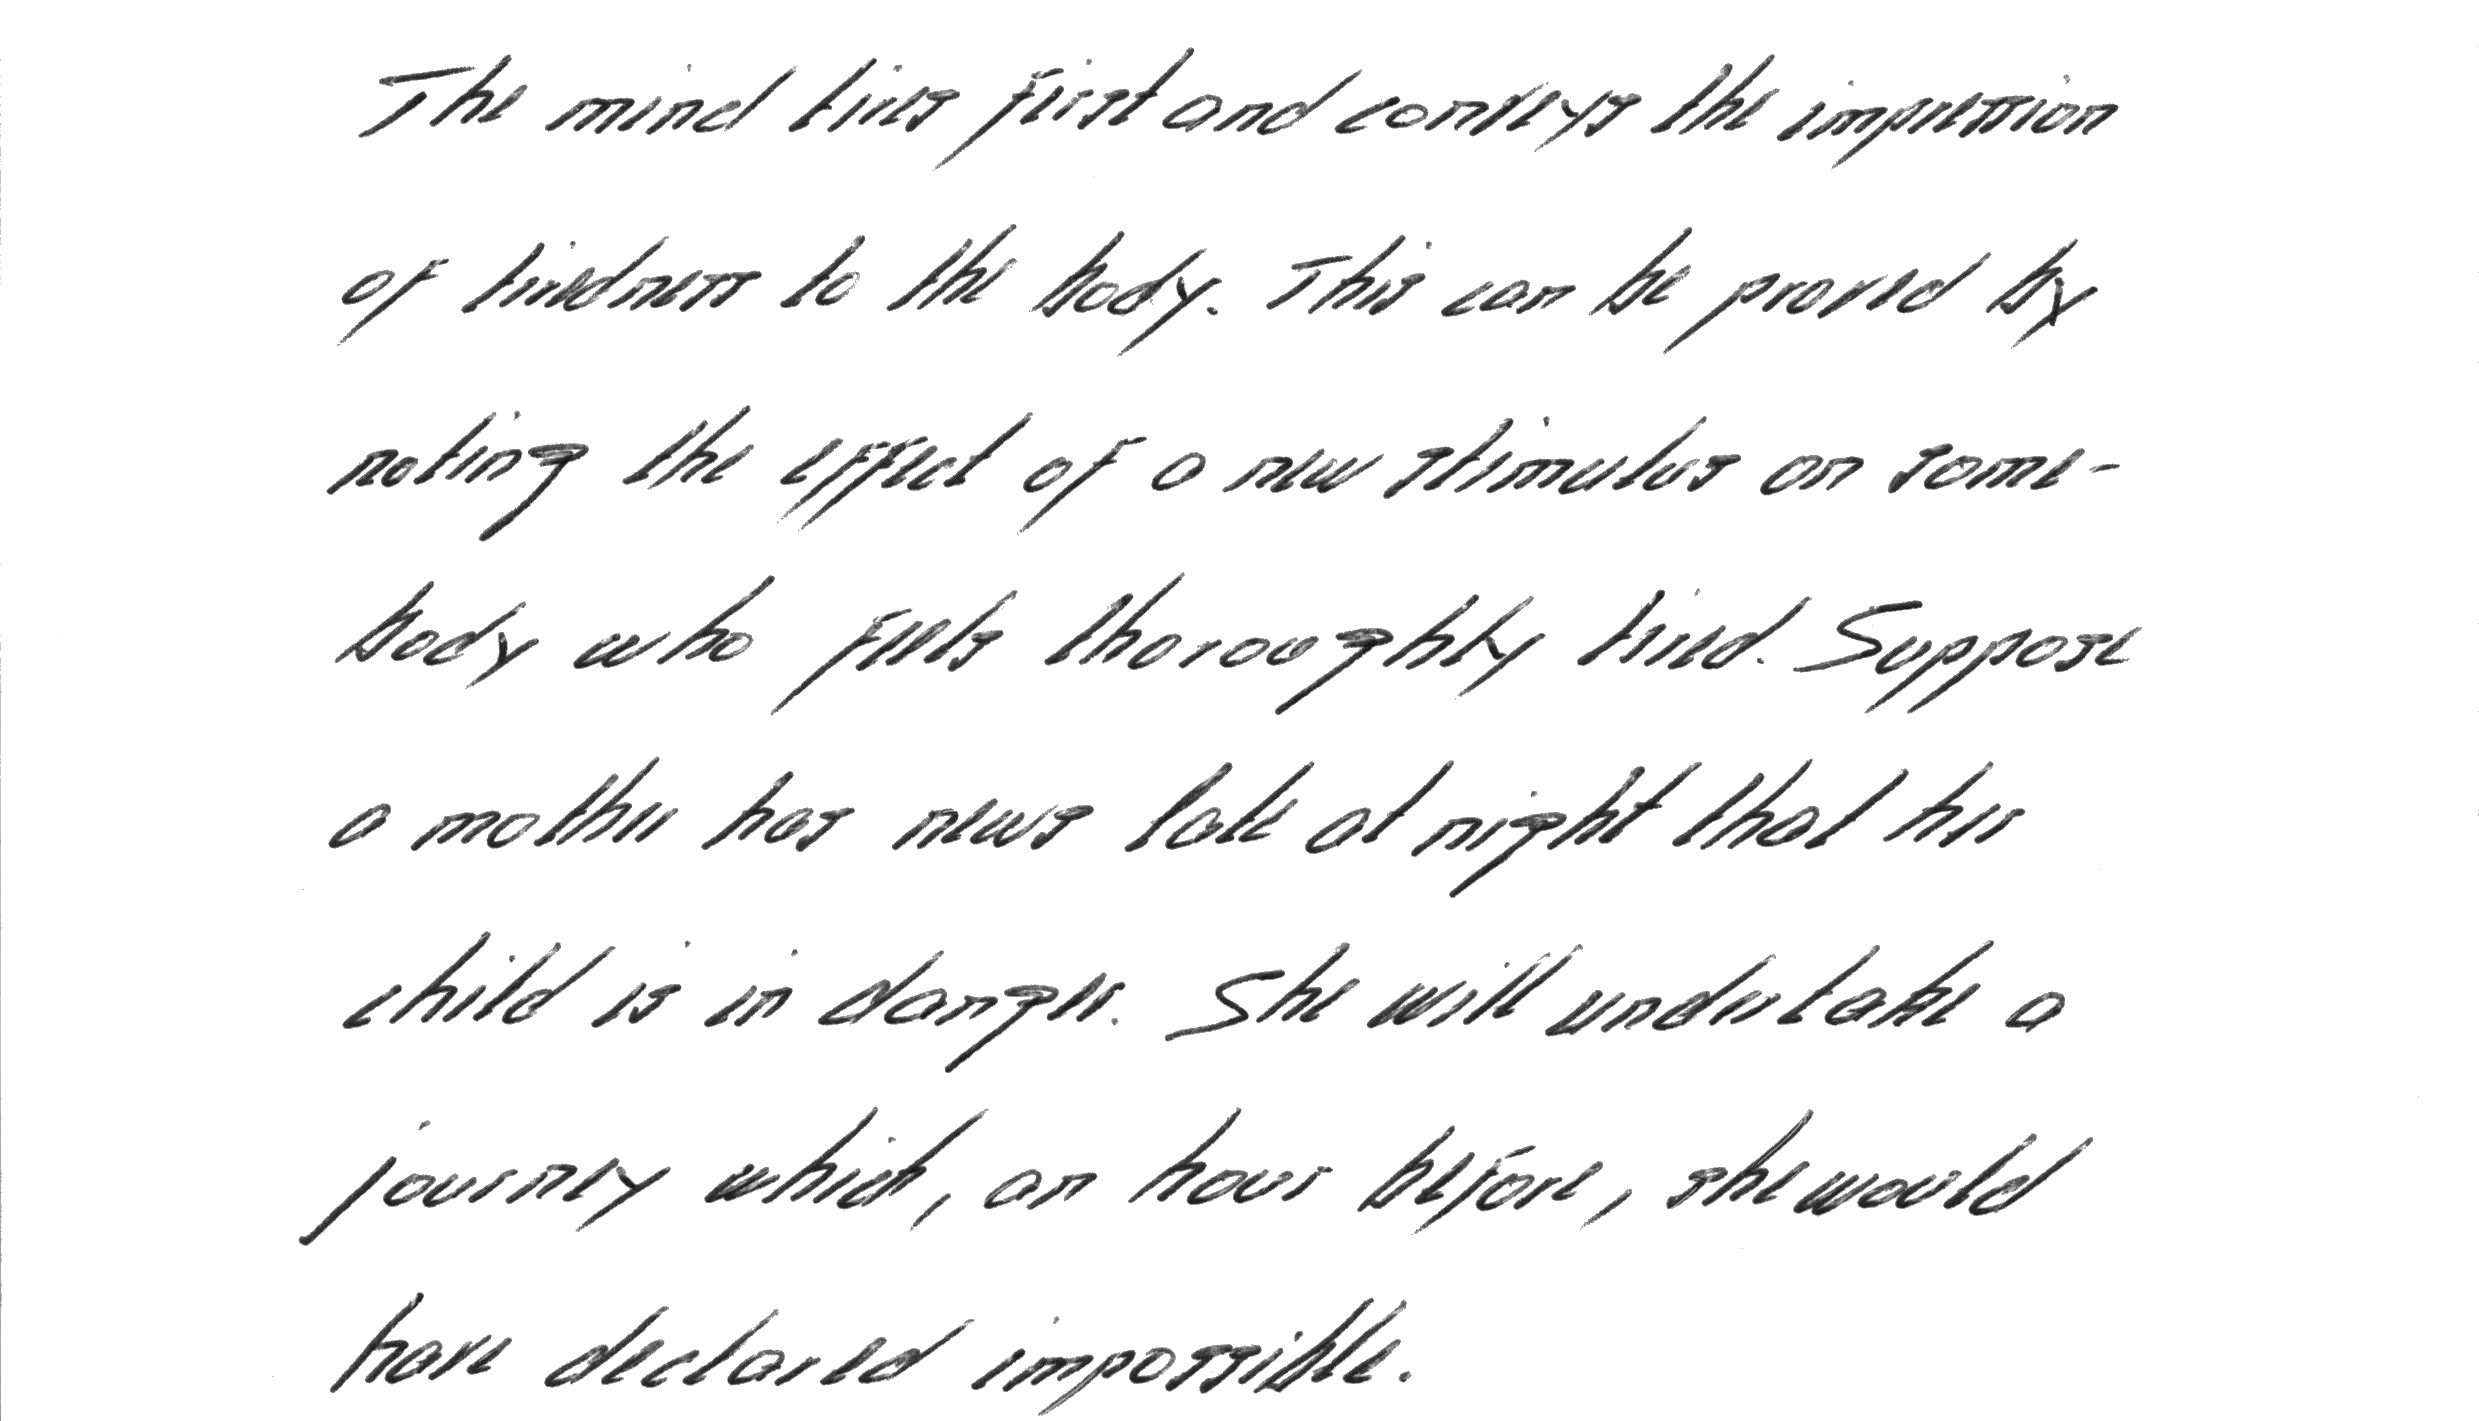 The mind tires first and conveys the impression
of tiredness to the body. This can be proved by
noting the effect of a new stimulus on some-
body who feels thoroughly tired. Suppose
a mother has news late at night that her
child is in danger. She will undertake a
journey which, an hour before, she would
have declared impossible.